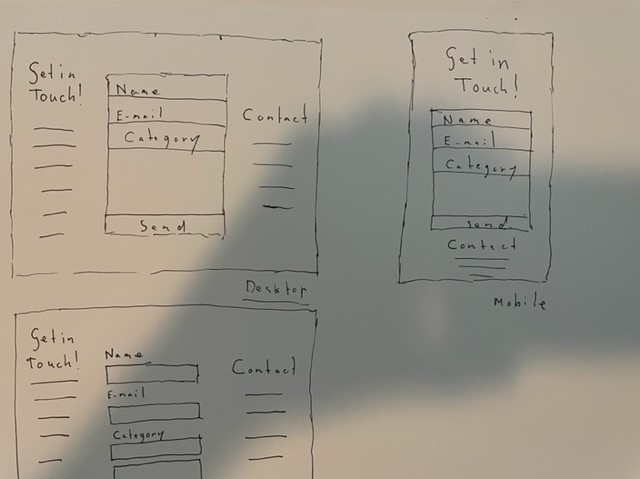 Get in
Touch!
Name
E-mail
Category
Send
Contact
Desktop
Get in
Touch!
Name
E-mail
Category
Send
Contact
Mobile
Get in
Touch!
Name
E-mail
Category
Contact